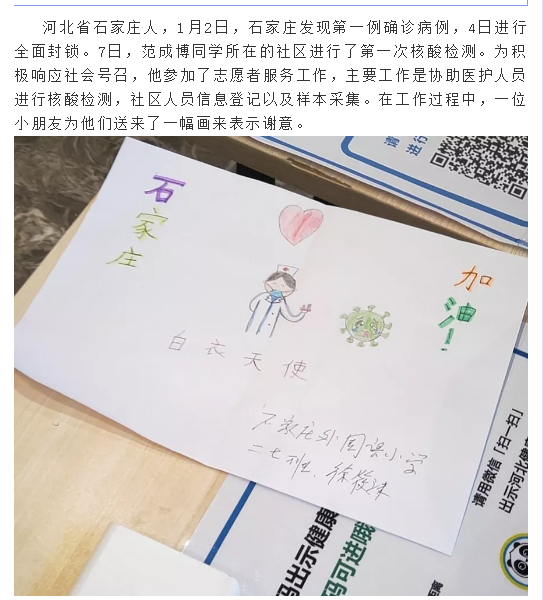 河北省石家庄人，1月2日，石家庄发现第一例确诊病例，4日进行
全面封锁。7日，范成博同学所在的社区进行了第一次核酸检测。为积
极响应社会号召，他参加了志愿者服务工作，主要工作是协助医护人员
进行核酸检测，社区人员信息登记以及样本采集。在工作过程中，一位
小朋友为他们送来了一幅画来表示谢意。
石
家
庄
加
油！
白衣天使
石家庄外国语小学
二七班、徐筱沐
请用微信「扫一扫」
出示河北健康
码出示健康
码可进